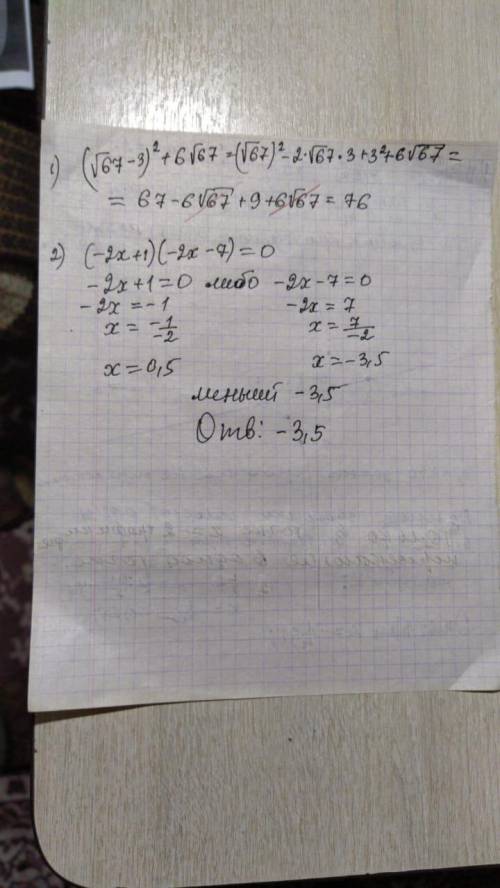 1) (√67-3)² + 6√67 = (√67)² - 2·√67·3 + 3² + 6√67 =
= 67 - 6√67 + 9 + 6√67 = 76
2) (-2x+1)(-2x-7)=0
-2x+1=0 либо -2x-7=0
-2x = -1 -2x = 7
x = -1/-2 x = 7/-2
x = 0,5 x = -3,5
меньший -3,5
Отв: -3,5